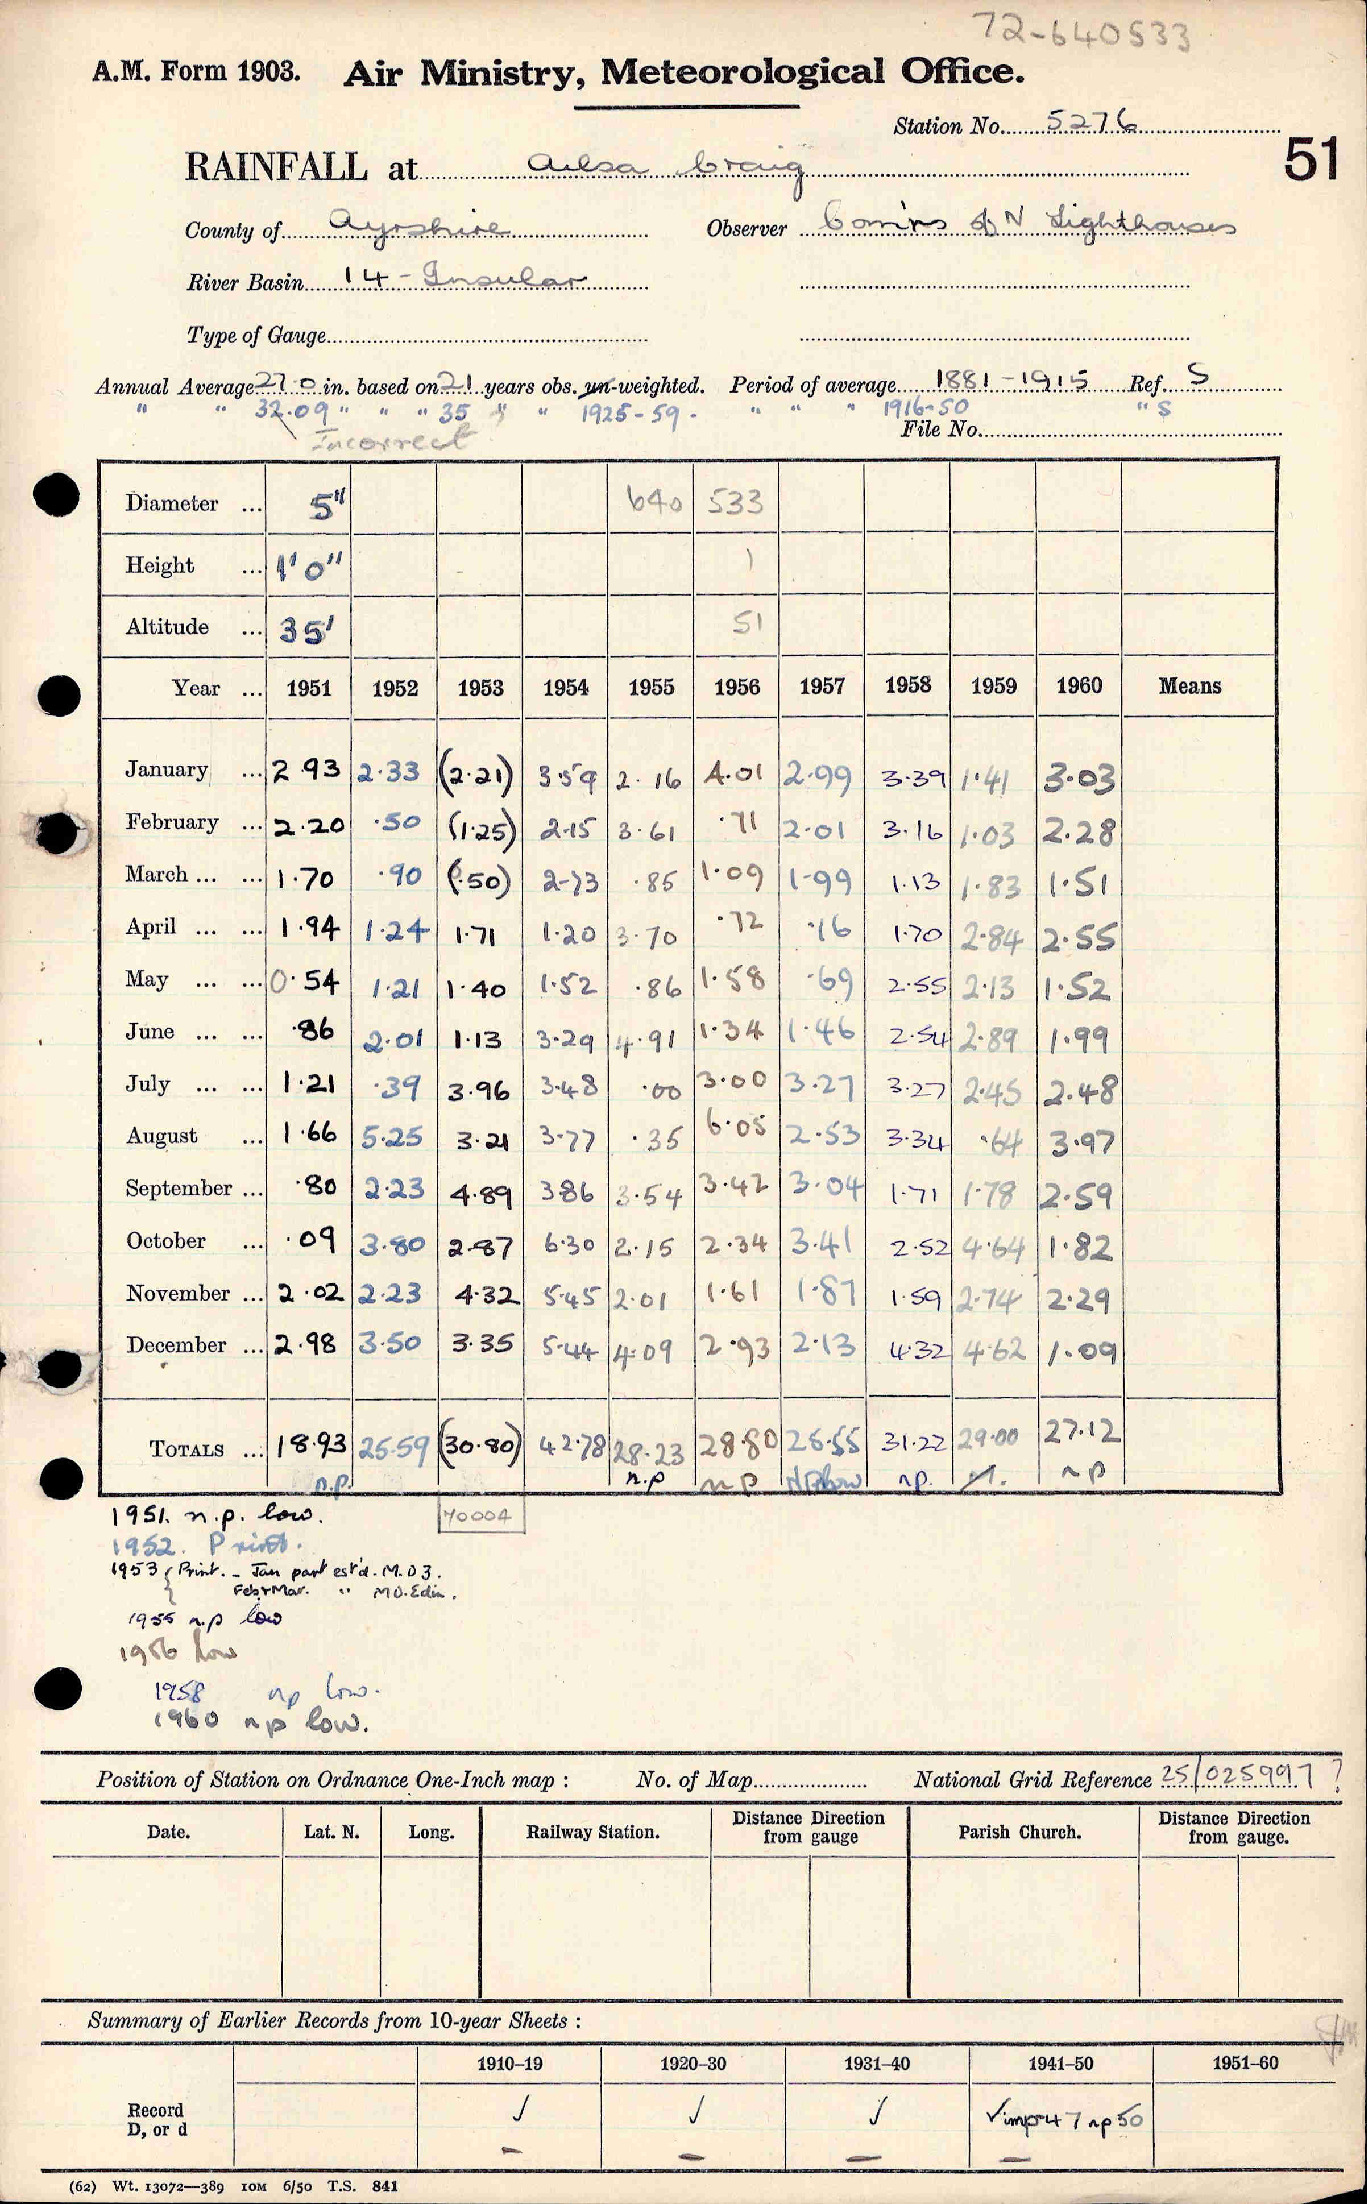 72-640533
A.M. Form 1903. Air Ministry, Meteorological Office.
Station No. 5276
51
RAINFALL at Ailsa Craig
County of Ayrshire Observer Com'rs of N Lighthouses
River Basin 14 - Insular
Type of Gauge
Annual Average 27.0 in. based on 21 years obs. un-weighted. Period of average 1881-1915 Ref. S
" " 32.09 " " " 35 " " 1925-59. " " " 1916-50 " S
Incorrect
File No.
Diameter ... 5" 640 533
Height ... 1'0" 1
Altitude ... 35' 51
Year ... 1951 1952 1953 1954 1955 1956 1957 1958 1959 1960 Means
January ... 2.93 2.33 (2.21) 3.59 2.16 4.01 2.99 3.39 1.41 3.03
February ... 2.20 .50 (1.25) 2.15 3.61 .71 2.01 3.16 1.03 2.28
March ... ... 1.70 .90 (.50) 2.73 .85 1.09 1.99 1.13 1.83 1.51
April ... ... 1.94 1.24 1.71 1.20 3.70 .72 .16 1.70 2.84 2.55
May ... ... 0.54 1.21 1.40 1.52 .86 1.58 .69 2.55 2.13 1.52
June ... ... .86 2.01 1.13 3.29 4.91 1.34 1.46 2.54 2.89 1.99
July ... ... 1.21 .39 3.96 3.48 .00 3.00 3.27 3.27 2.45 2.48
August ... 1.66 5.25 3.21 3.77 .35 6.05 2.53 3.34 .64 3.97
September ... .80 2.23 4.89 3.86 3.54 3.42 3.04 1.71 1.78 2.59
October ... .09 3.80 2.87 6.30 2.15 2.34 3.41 2.52 4.64 1.82
November ... 2.02 2.23 4.32 5.45 2.01 1.61 1.87 1.59 2.74 2.29
December ... 2.98 3.50 3.35 5.44 4.09 2.93 2.13 4.32 4.62 1.09
TOTALS ... 18.93 25.59 (30.80) 42.78 28.23 28.80 25.55 31.22 29.00 27.12
n.p. n.p n p NP low n.p. n p
1951. n.p. low. 40004
1952. Print.
1953 { Print. - Jan part est'd. M.O3.
Feb+Mar. " M.O.Edin.
1955 n.p low
1956 low
1958 np low.
1960 np low.
Position of Station on Ordnance One-Inch map : No. of Map National Grid Reference 25/025997 ?
Date. Lat. N. Long. Railway Station. Distance from gauge Direction Parish Church. Distance from gauge. Direction
Summary of Earlier Records from 10-year Sheets :
1910-19 1920-30 1931-40 1941-50 1951-60
Record D, or d ✓ ✓ ✓ ✓ imp 47 np 50
– – – –
(62) Wt. 13072—389 10M 6/50 T.S. 841